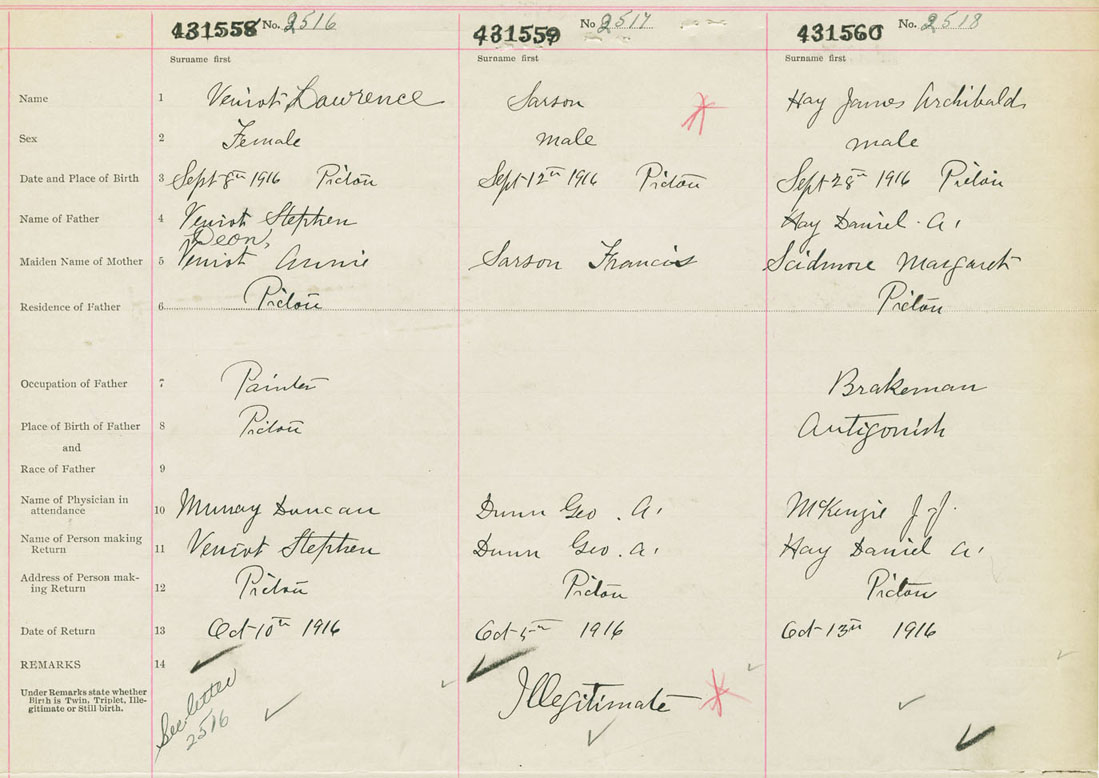 431558 No. 2516 431559 No 2517 431560 No. 2518
Surname first Surname first Surname first
Name 1 Veniot Lawrence Sarson Hay James Archibald
Sex 2 Female male male
Date and Place of Birth 3 Sept 8th 1916 Pictou Sept 12th 1916 Pictou Sept 28th 1916 Pictou
Name of Father 4 Veniot Stephen Hay Daniel. A.
Deon,
Maiden Name of Mother 5 Veniot Annie Sarson Francis Scidmore Margaret
Residence of Father 6 Pictou Pictou
Occupation of Father 7 Painter Brakeman
Place of Birth of Father 8 Pictou Antigonish
and
Race of Father 9
Name of Physician in
attendance 10 Murray Duncan Dunn Geo. A. McKenzie J. J.
Name of Person making
Return 11 Veniot Stephen Dunn Geo. A. Hay Daniel A.
Address of Person mak-
ing Return 12 Pictou Pictou Pictou
Date of Return 13 Oct 10th 1916 Oct 5th 1916 Oct 13th 1916
REMARKS 14
Under Remarks state whether
Birth is Twin, Triplet, Ille-
gitimate or Still birth.
See letter
2516
Illegitimate